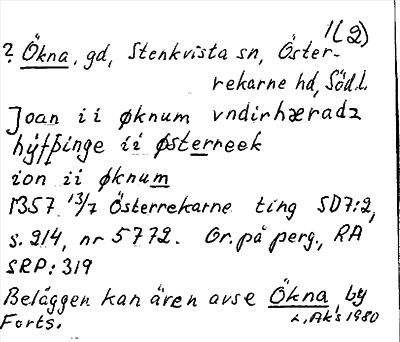 1(2)
? Ökna, gd, Stenkvista sn, Öster-
rekarne hd, Södl.
Joan ii øknum vndirhæradz
hyfþinge ii østerreek
ion ii øknum
1357 13/7 Österrekarne ting SD7:2,
s. 214, nr 5772. Or. på perg., RA
SRP: 319
Beläggen kan även avse Ökna, by
Forts. L. Aks 1980